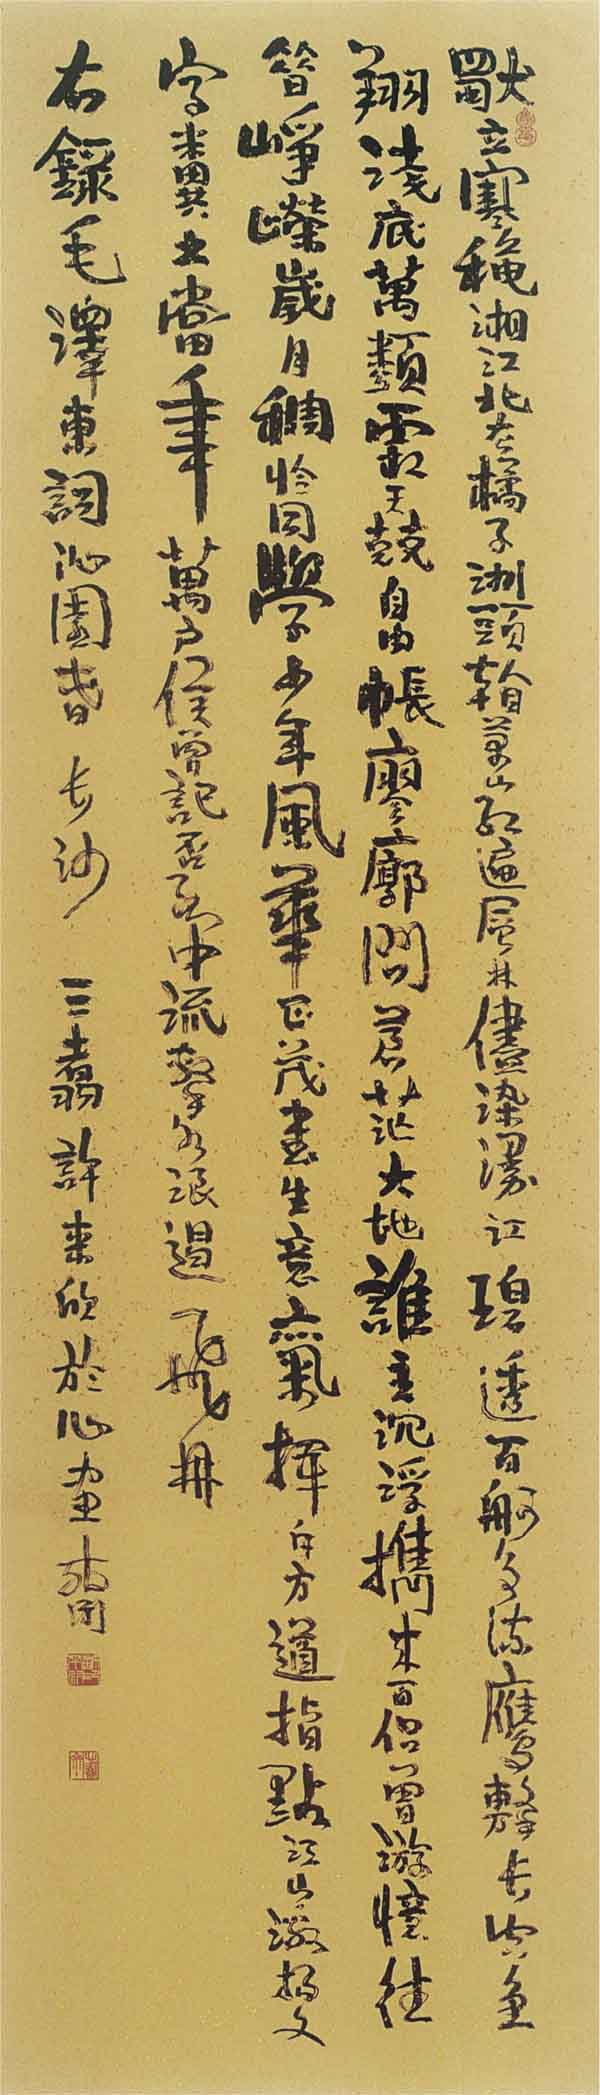 獨立寒穐湘江北去橘子洲頭看萬山紅遍層林儘染漫江碧透百舸争流鷹擊長空魚
翔淺底萬類霜天競自由悵廖廓問蒼茫大地誰主沉浮攜來百侣曾游憶往
昔崢嶸歲月稠恰同學少年風華正茂書生意氣揮斥方遒指點江山激揚文
字糞土當年萬户侯曾記否到中流擊水浪遏飛舟
右錄毛澤東詞沁園春長沙 三翥許來欣於心画